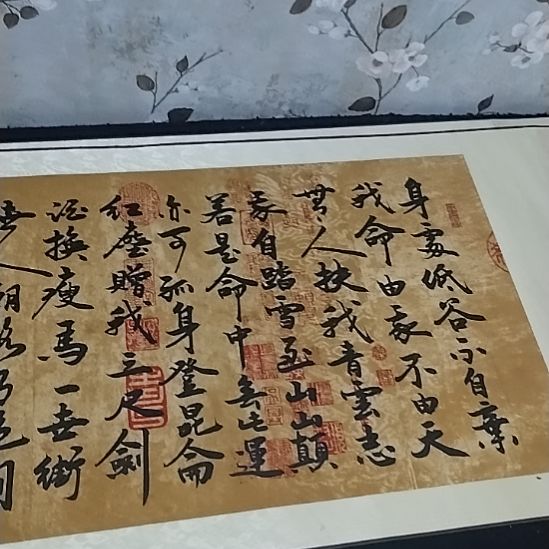 身處低谷不自棄
我命由我不由天
無人扶我青雲志
我自踏雪至山巔
若是命中無此運
亦可孤身登昆侖
紅塵贈我三尺劍
換瘦馬一世街
人朝